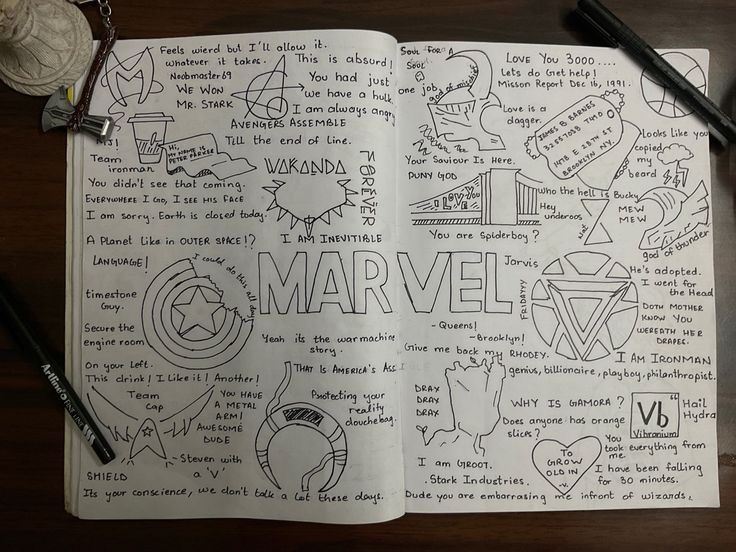 Feels wierd but I'll allow it.
whatever it takes.
Noobmaster69
WE WON
MR. STARK
This is absurd!
You had just
we have a hulk
I am always angry
AVENGERS ASSEMBLE
MJ!
Hi,
MY NAME IS
PETER PARKER
Till the end of line.
Team
ironman
WAKANDA
FOREVER
You didn't see that coming.
EVERYWHERE I GO, I SEE HIS FACE
I am sorry. Earth is closed today.
A Planet Like in OUTER SPACE!?
I AM INEVITIBLE
LANGUAGE!
I could do this all day
timestone
Guy.
Secure the
engine room
On your Left.
This drink! I Like it! Another!
Yeah its the war machine
story.
THAT IS AMERICA'S ASS
Team
Cap
YOU HAVE
A METAL
ARM!
AWESOME
DUDE
Protecting your
reality
douchebag.
- Steven with
a 'V'
SHIELD
Its your conscience, we don't talk a lot these days.
MARVEL
Soul FOR A
Soul
one job
god of mischief
LOVE YOU 3000....
Lets do Get help!
Misson Report Dec 16, 1991.
Love is a
dagger.
JAMES B BARNES
32557038 T41 42 O
BROOKLYN NY.
Looks Like you
copied
my
beard
Your Saviour Is Here.
PUNY GOD
I LOVE
YOU
who the hell is Bucky
Hey
underoos
Nat
MEW
MEW
god of thunder
You are Spiderboy?
Jarvis
FRIDAYYY
He's adopted.
I went for
the Head
DOTH MOTHER
KNOW YOU
WEREATH HER
DRAPES.
- Queens!
- Brooklyn!
Give me back my RHODEY.
I AM IRONMAN
genius, billionaire, playboy, philanthropist.
DRAX
DRAX
DRAX
WHY IS GAMORA?
Does anyone has orange
slices?
Vb
Vibranium
Hail
Hydra
You
took everything from
me.
I am GROOT.
. Stark Industries.
TO
GROW
OLD IN
-V.
I have been falling
for 30 minutes.
Dude you are embarrasing me infront of wizards.
Artline